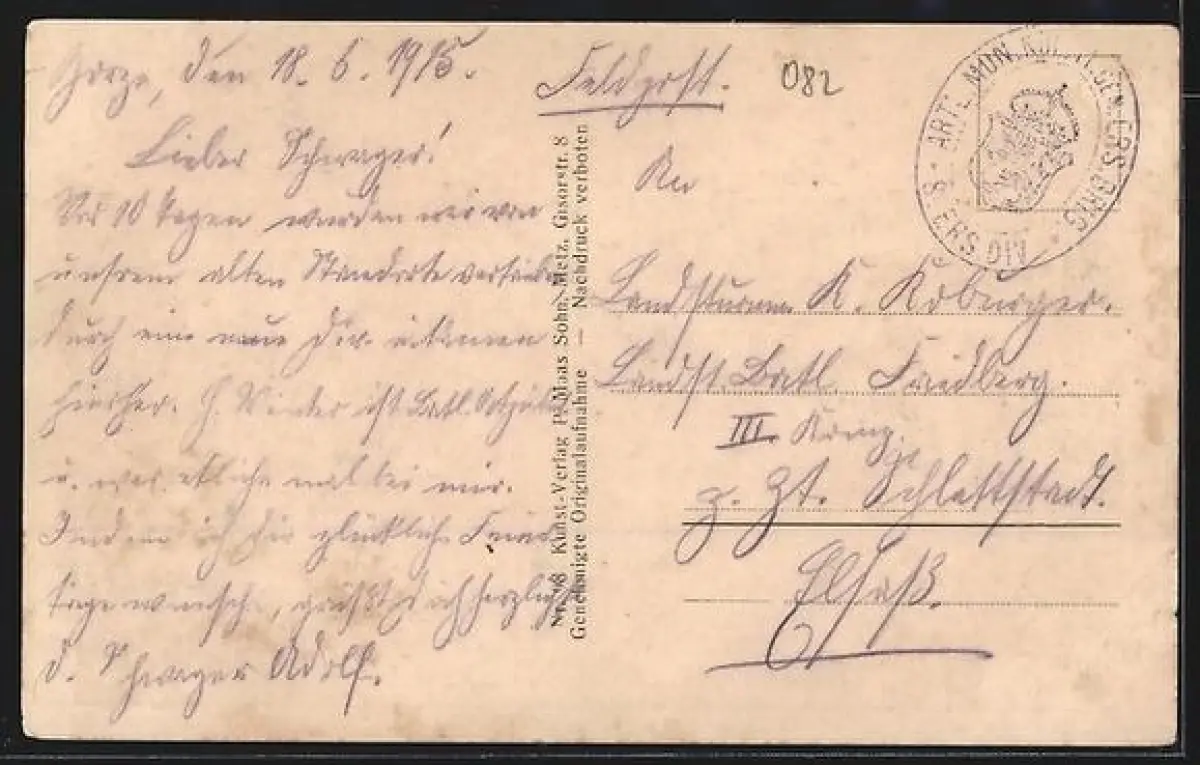 Gorze, den 18.6.1915.
Lieber Schwager!
Vor 10 Tagen wurden wir von
unsrem alten Standorte versetzt
durch eine neue Div. u. kamen
hierher. H. ist Batl.
u. war etliche mal bei mir.
Indem ich dir glückliche Feier
tage wünsche, grüßt dich herzlichst
d. Schwager Adolf.
Feldpost.
082
An
Landsturmm. K. Koburger.
Landst. Batl. Friedberg.
III. Komp.
z. Zt. Schlettstadt.
Elsaß.
Nr. Kunst-Verlag P. Maas Sohn, Metz, Gisorstr. 8
Genehmigte Originalaufnahme — Nachdruck verboten
ART. MUN. ERS. BRIG. * 8. ERS. DIV. *